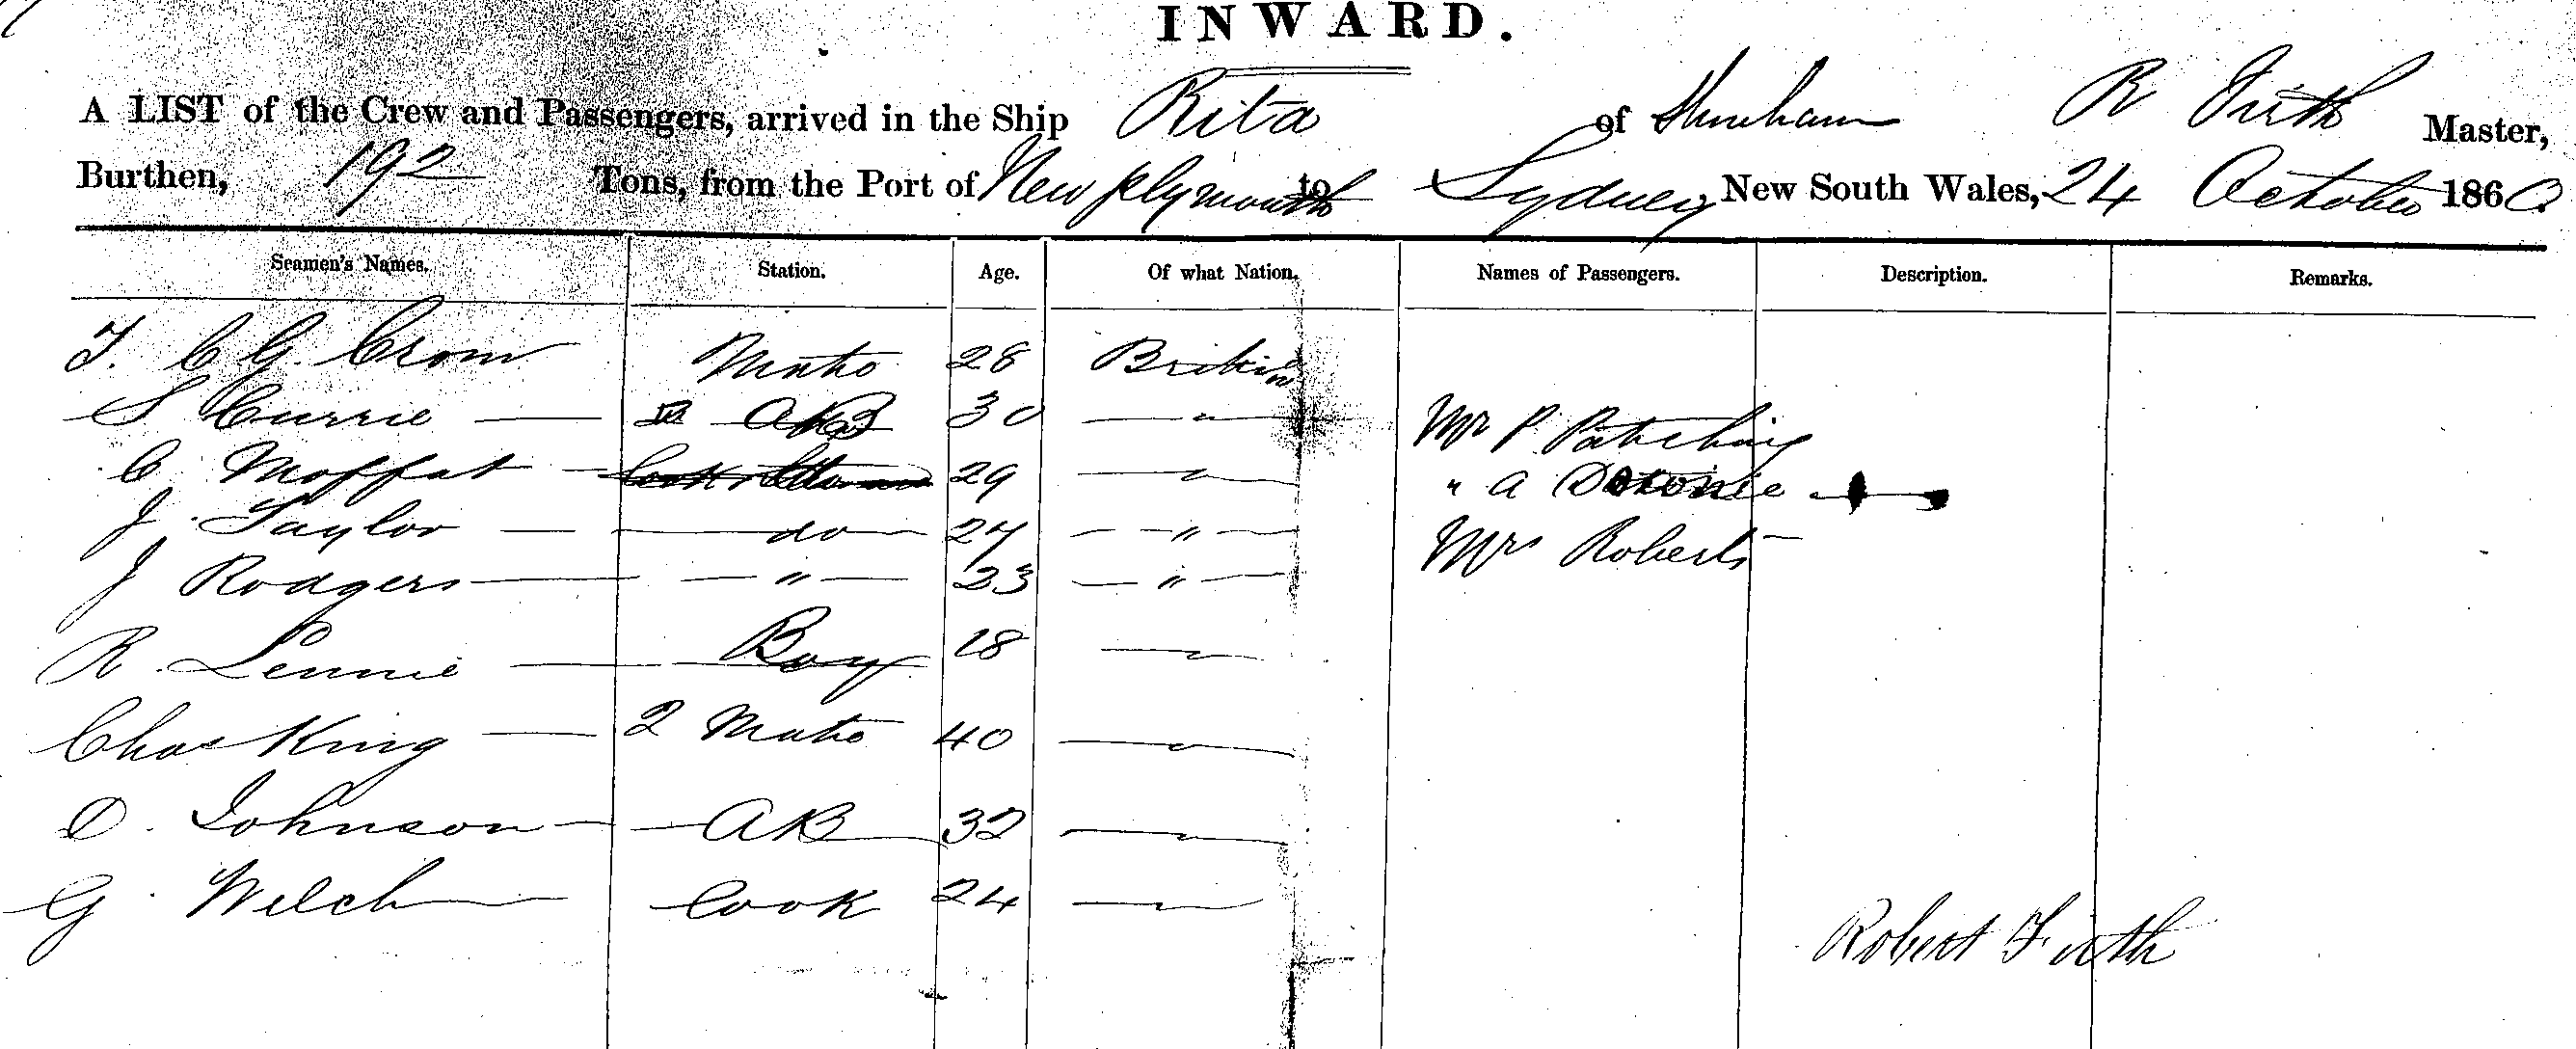 INWARD.
A LIST of the Crew and Passengers, arrived in the Ship Rita of Shoreham R Firth Master,
Burthen, 192 Tons, from the Port of New Plymouth to Sydney New South Wales, 24 October 1860
Seamen's Names. Station. Age. Of what Nation. Names of Passengers. Description. Remarks.
T. C G. Crom Mate 28 Britain
S Currie — AB 30 — " — Mr P. Patching
C Moffat — 29 — " — " A
J Taylor — do — 27 — " — Mrs Roberts —
J Rodgers — " — 23 — " —
R. Lennie — Boy 18 — " —
Chas King — 2 Mate 40 — " —
D. Johnson — AB 32 — " —
G. Welch — Cook 24 — " —
Robert Firth